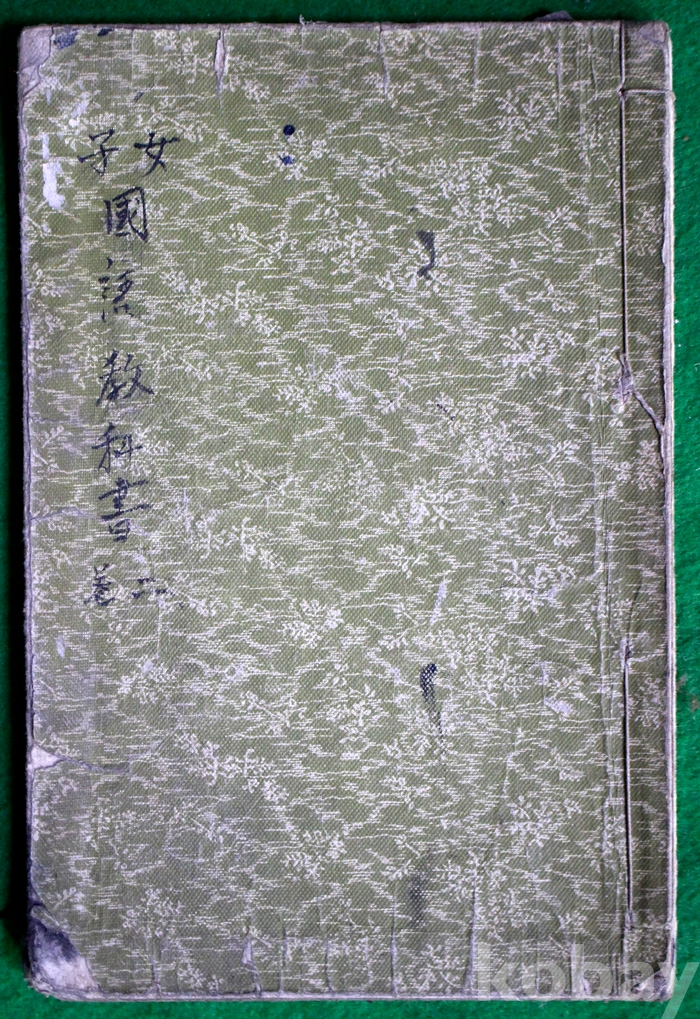 女子國語教科書 二卷
kobay